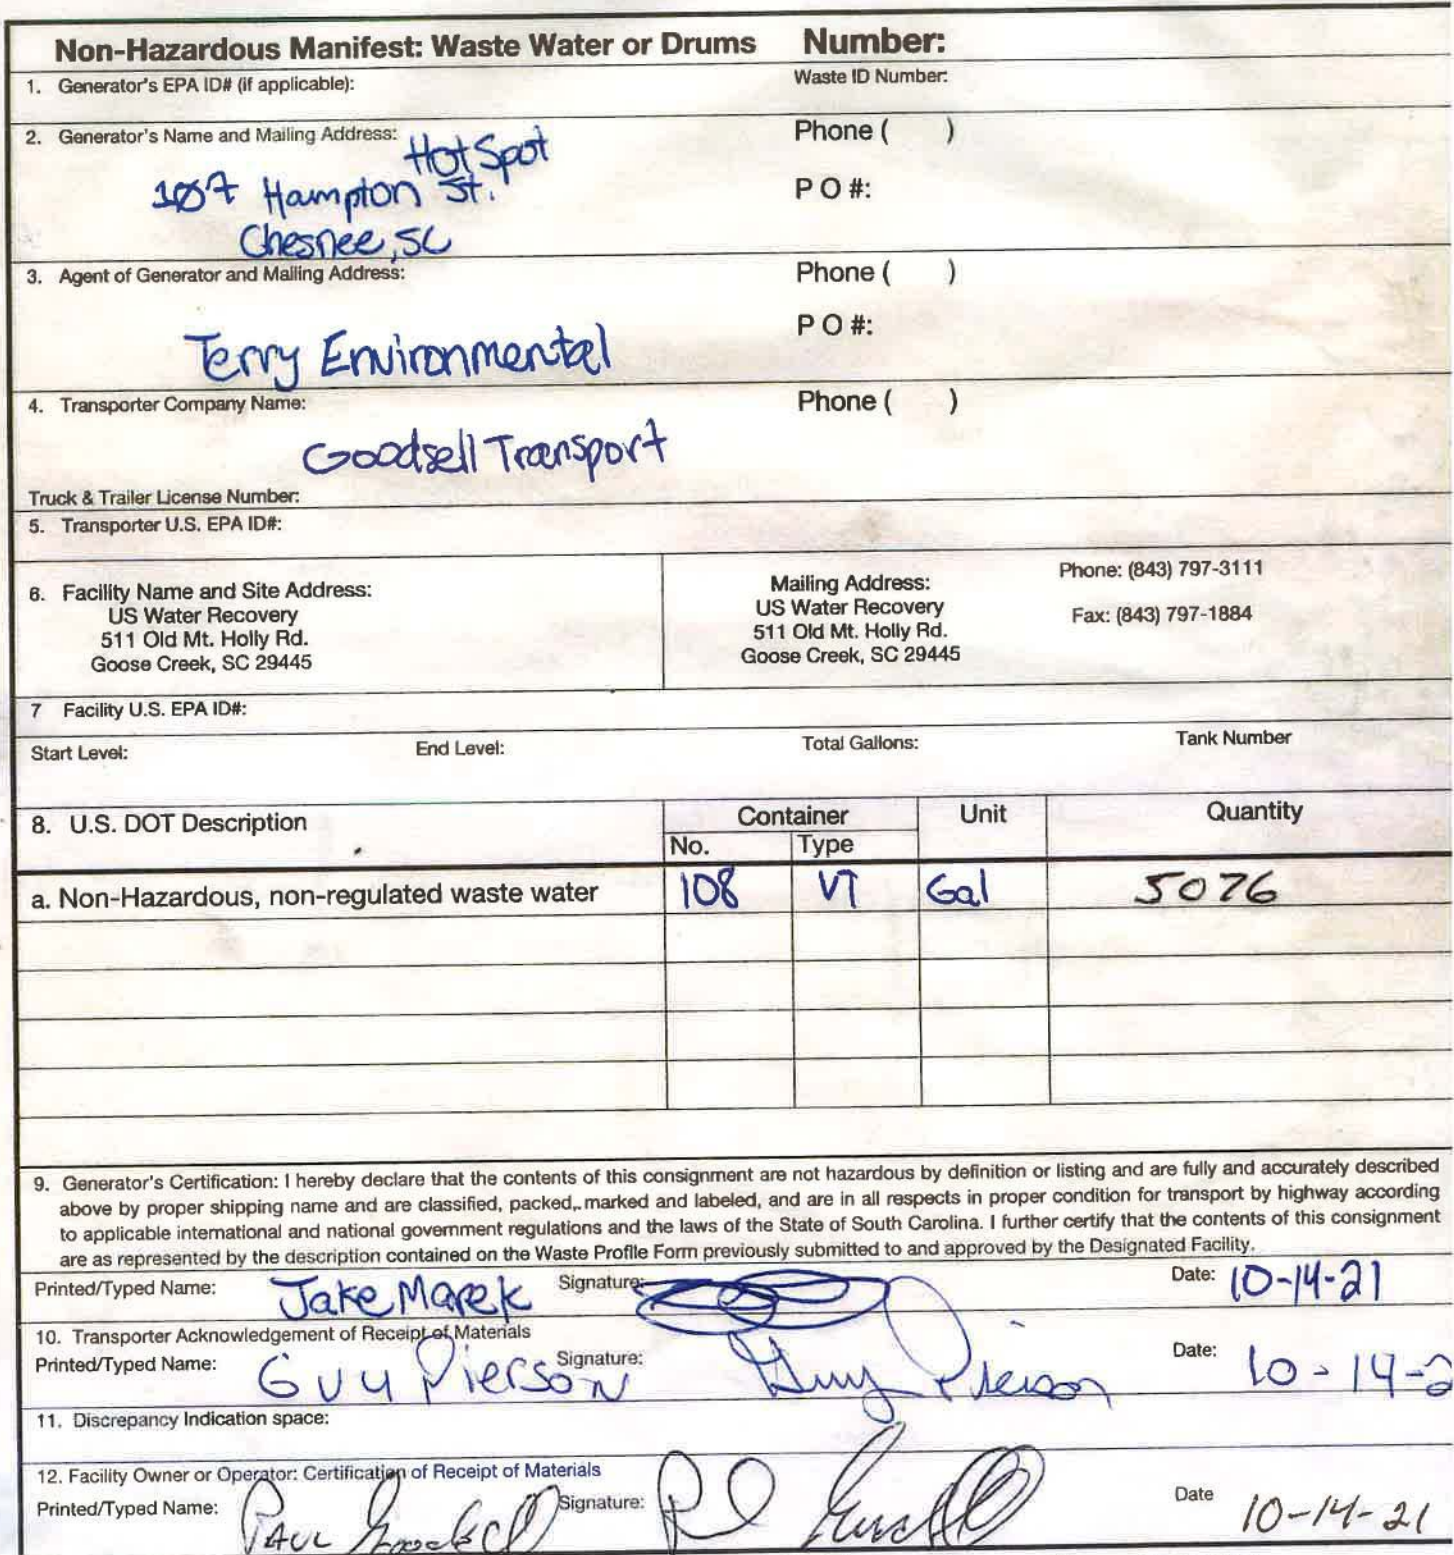 Non-Hazardous Manifest: Waste Water or Drums Number:
1. Generator's EPA ID# (if applicable): Waste ID Number:
2. Generator's Name and Mailing Address: Phone ( )
Hot Spot
107 Hampton St. P O #:
Chesnee, SC
3. Agent of Generator and Mailing Address: Phone ( )
P O #:
Terry Environmental
4. Transporter Company Name: Phone ( )
Goodsell Transport
Truck & Trailer License Number:
5. Transporter U.S. EPA ID#:
6. Facility Name and Site Address:
US Water Recovery
511 Old Mt. Holly Rd.
Goose Creek, SC 29445
Mailing Address:
US Water Recovery
511 Old Mt. Holly Rd.
Goose Creek, SC 29445
Phone: (843) 797-3111
Fax: (843) 797-1884
7 Facility U.S. EPA ID#:
Start Level: End Level: Total Gallons: Tank Number
8. U.S. DOT Description Container Unit Quantity
No. Type
a. Non-Hazardous, non-regulated waste water 108 VT Gal 5076
9. Generator's Certification: I hereby declare that the contents of this consignment are not hazardous by definition or listing and are fully and accurately described
above by proper shipping name and are classified, packed, marked and labeled, and are in all respects in proper condition for transport by highway according
to applicable international and national government regulations and the laws of the State of South Carolina. I further certify that the contents of this consignment
are as represented by the description contained on the Waste Profile Form previously submitted to and approved by the Designated Facility.
Printed/Typed Name: Jake Marek Signature: Date: 10-14-21
10. Transporter Acknowledgement of Receipt of Materials
Printed/Typed Name: Guy Pierson Signature: Guy Pierson Date: 10-14-2
11. Discrepancy Indication space:
12. Facility Owner or Operator: Certification of Receipt of Materials
Printed/Typed Name: PAUL Signature: Date 10-14-21